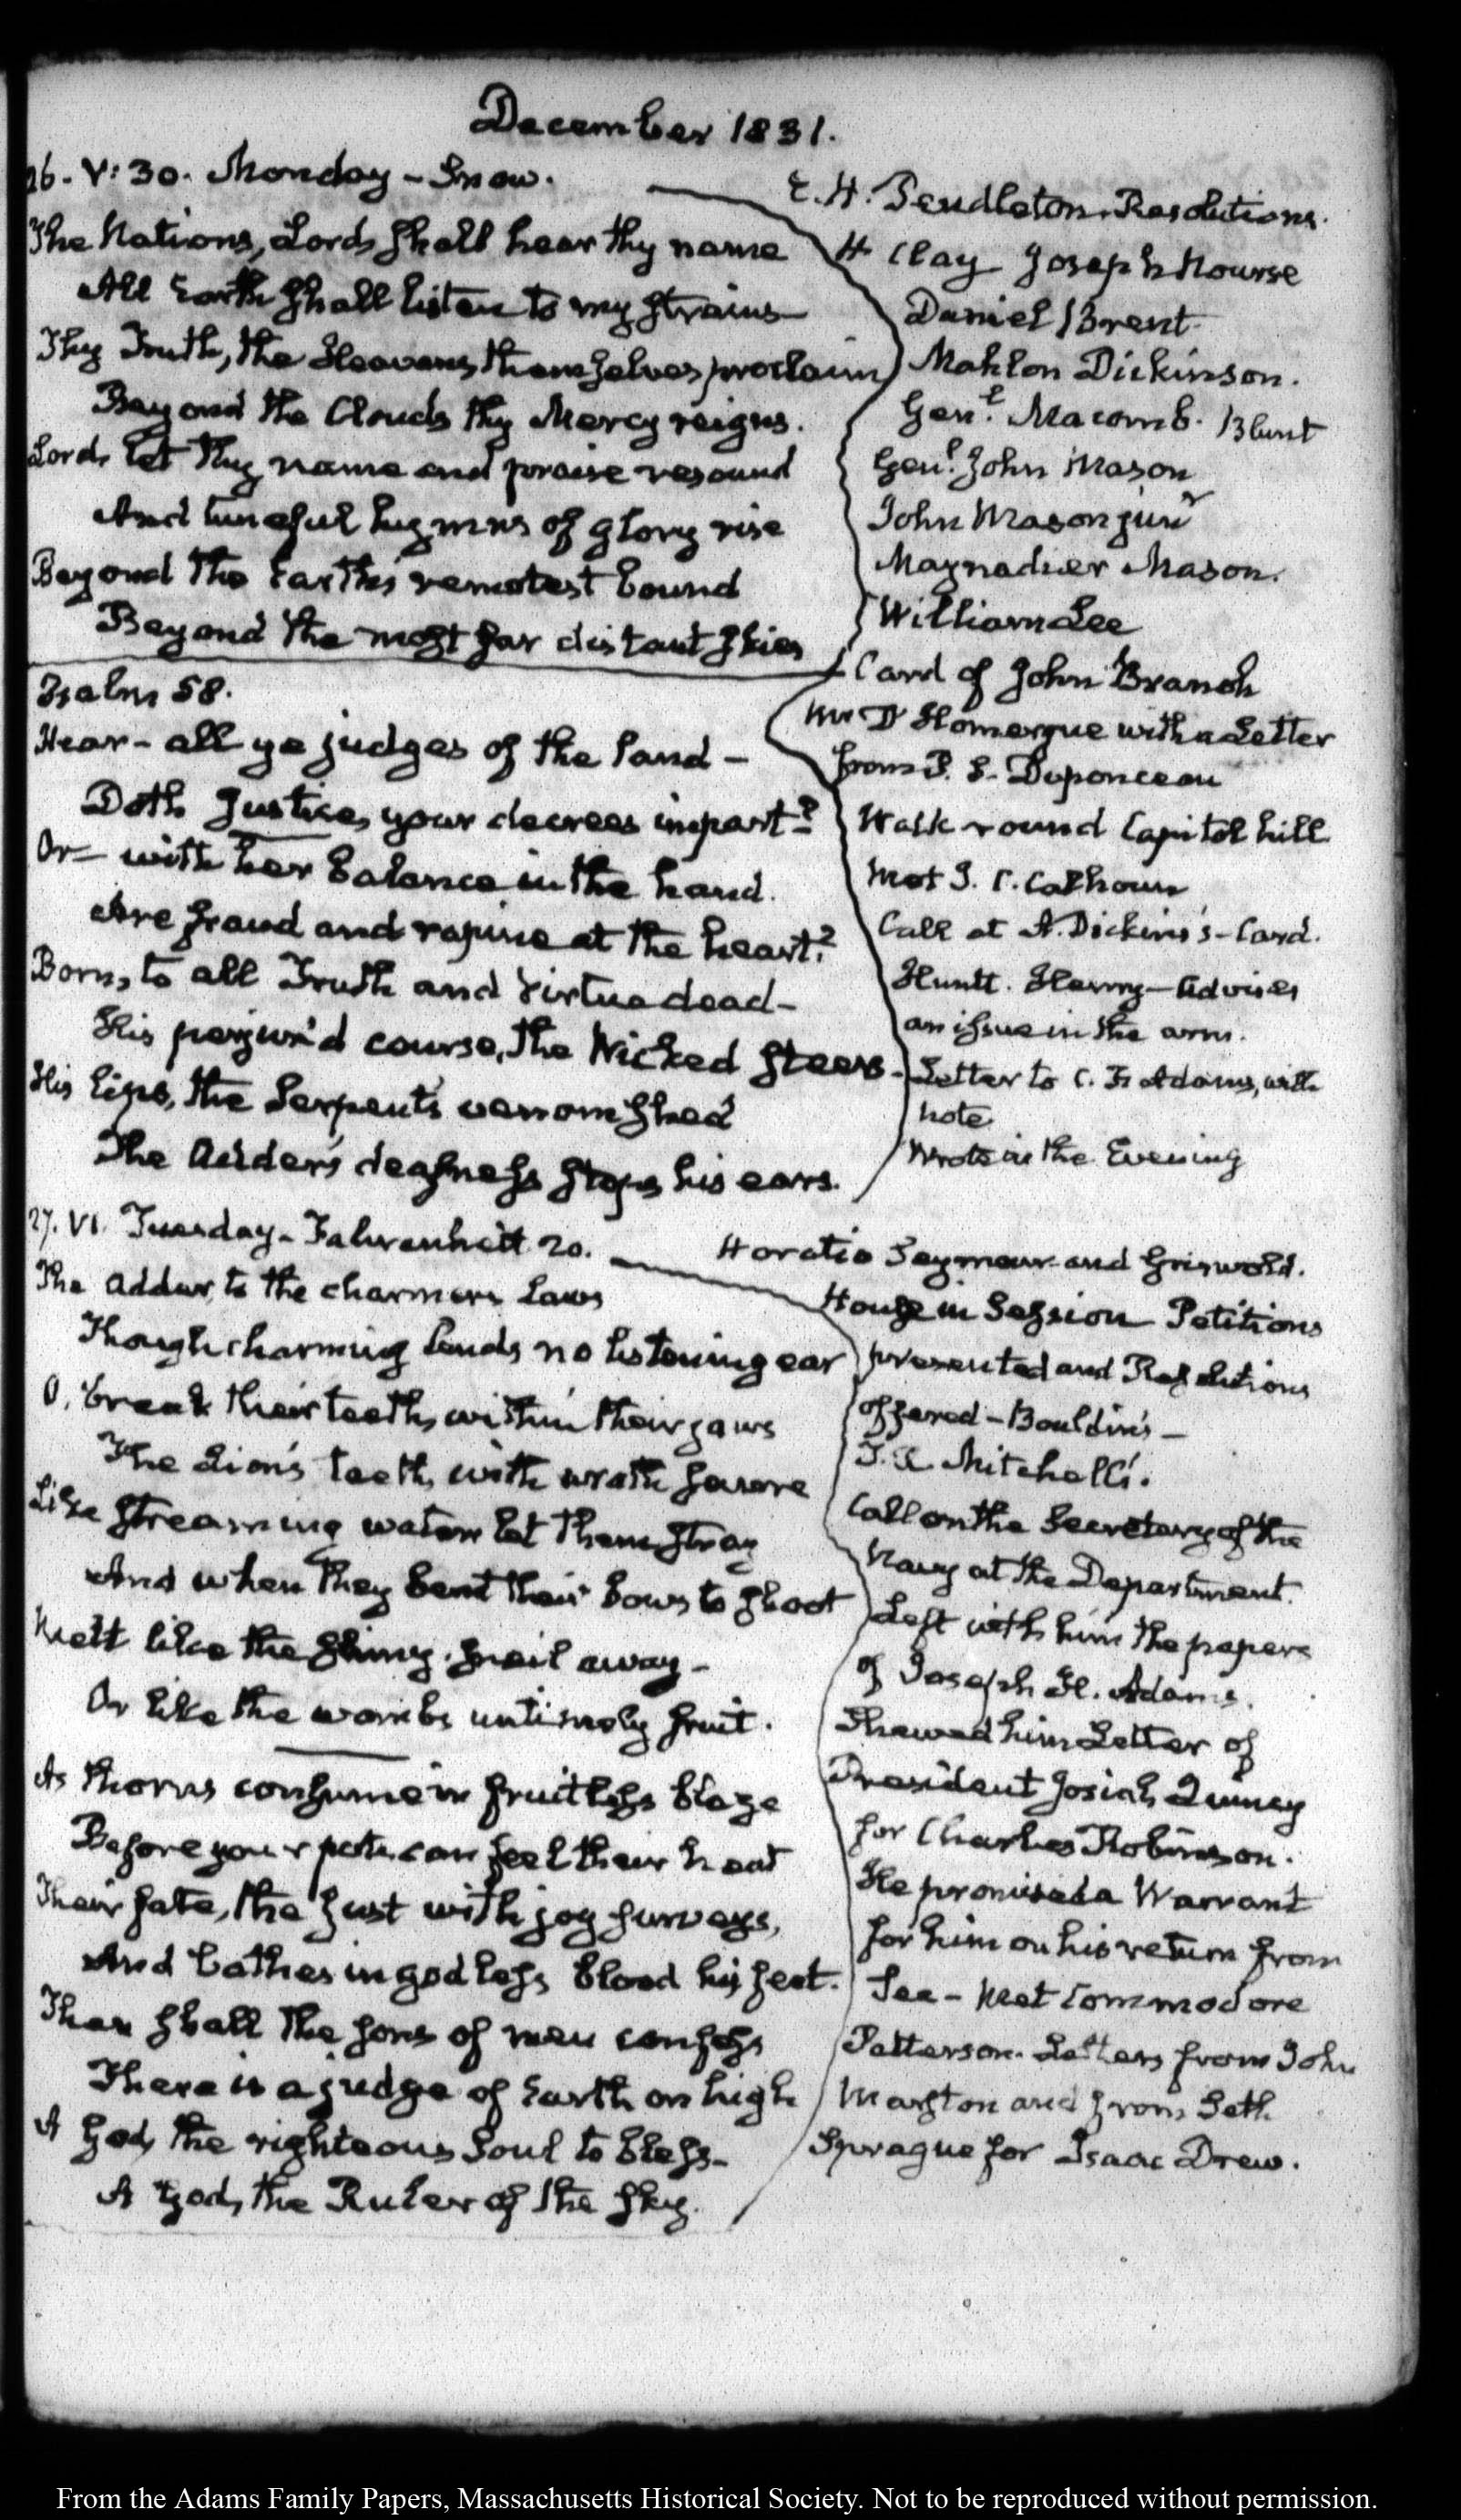 December 1831.
26. V: 30. Monday - Snow.
The Nations, Lord, shall hear thy name
All Earth shall listen to my strains
Thy Truth, the Heavens, themselves proclaim
Beyond the Clouds thy Mercy reigns.
Lord, let thy name and praise resound
And tuneful hymns of glory rise
Beyond the Earth's remotest bound
Beyond the most far distant skies
Psalm 58.
Hear - all ye judges of the land -
Doth Justice, your decrees impart?
Or - with her balance in the hand.
Are fraud and rapine at the heart?
Born, to all Truth and Virtue dead -
His perjur'd course, the Wicked steers -
His lips, the Serpent's venom shed
The Adder's deafness stops his ears.
E. H. Pendleton. Resolutions.
H Clay Joseph Nourse
Daniel Brent
Mahlon Dickinson.
Genl. Macomb. Blunt
Genl. John Mason
John Mason junr
Maynadier Mason.
William Lee
Card of John Branch
Mr D'Homergue with a Letter
from P. S. Duponceau
Walk round Capitol hill
Met J. C. Calhoun
Call at A. Dickins's - Card.
Huntt. Henry - Advises
an issue in the arm.
Letter to C. F. Adams, with
note
Wrote in the Evening
27. VI. Tuesday - Fahrenheit 20.
The adder, to the charmers Laws
Though charming lends no listening ear
O, break their teeth, within their jaws
The Lion's teeth, with wrath severe
Like streaming waters let them stray
And when they bend their bows to shoot
Melt like the slimy snail away -
Or like the womb's untimely fruit.
As thorns consume in fruitless blaze
Before your pots can feel their heat
Their fate, the just with joy surveys,
And bathes in godless blood his feet.
Then shall the sons of men confess
There is a judge of Earth on high
A God, the righteous Soul to bless -
A God, the Ruler of the sky.
Horatio Seymour and Griswold.
House in Session Petitions
presented and Resolutions
offered - Bouldin's -
T. R. Mitchell's.
Call on the Secretary of the
Navy at the Department.
Left with him the papers
of Joseph H. Adams.
Shewed him Letter of
President Josiah Quincy
for Charles Robinson.
He promised a Warrant
for him on his return from
Sea - Met Commodore
Patterson. Letters from John
Marston and from Seth
Sprague for Isaac Drew.
From the Adams Family Papers, Massachusetts Historical Society. Not to be reproduced without permission.